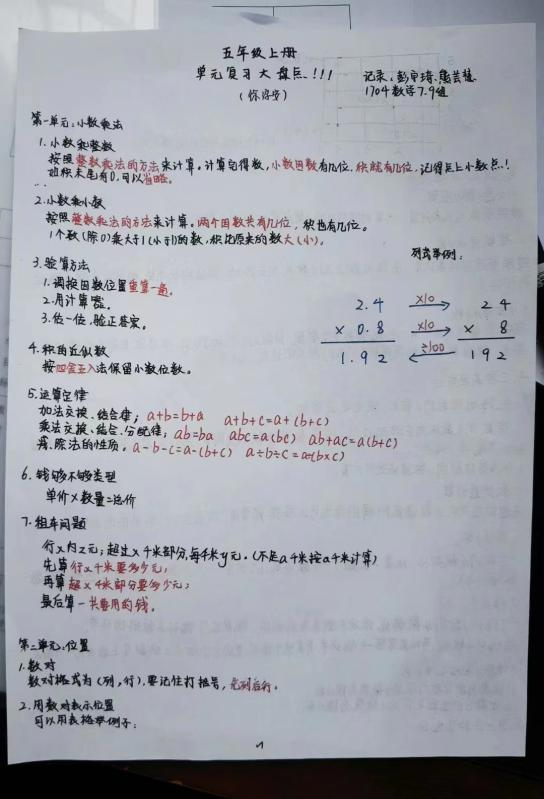 五年级上册
单元复习大盘点!!!
1704数学7.9组
第一单元:小数乘法
1.小数乘整数
按照整数乘法的方法来计算。计算完得数,小数因数有几位,积就有几位,记得点上小数点!
如积末尾有0,可以省略。
...
2.小数乘小数
按照整数乘法的方法来计算。两个因数共有几位,积也有几位。
1个数(除0)乘大于1(小于1)的数,积比原来的数大(小)。
列式举例:
3.验算方法
1.调换因数位置重算一遍。
2.用计算器。
3.估一估,验正答案。
2.4 ×10 24
× 0.8 ×10 × 8
1.92 ÷100 192
4.积的近似数
按四舍五入法保留小数位数。
5.运算定律
加法交换、结合律; a+b=b+a a+b+c=a+(b+c)
乘法交换、结合、分配律; ab=ba abc=a(bc) ab+ac=a(b+c)
减、除法的性质。a-b-c=a-(b+c) a÷b÷c=a÷(b×c)
6.钱够不够类型
单价×数量=总价
7.租车问题
行x内z元;超过x千米部分,每千米y元。(不足a千米按a千米计算)
先算行x千米要多少元;
再算超x千米部分要多少元;
最后算一共要用的钱。
第二单元:位置
1.数对
数对格式为(列,行),要记住打括号,先列后行。
2.用数对表示位置
可以用表格举例子:
1